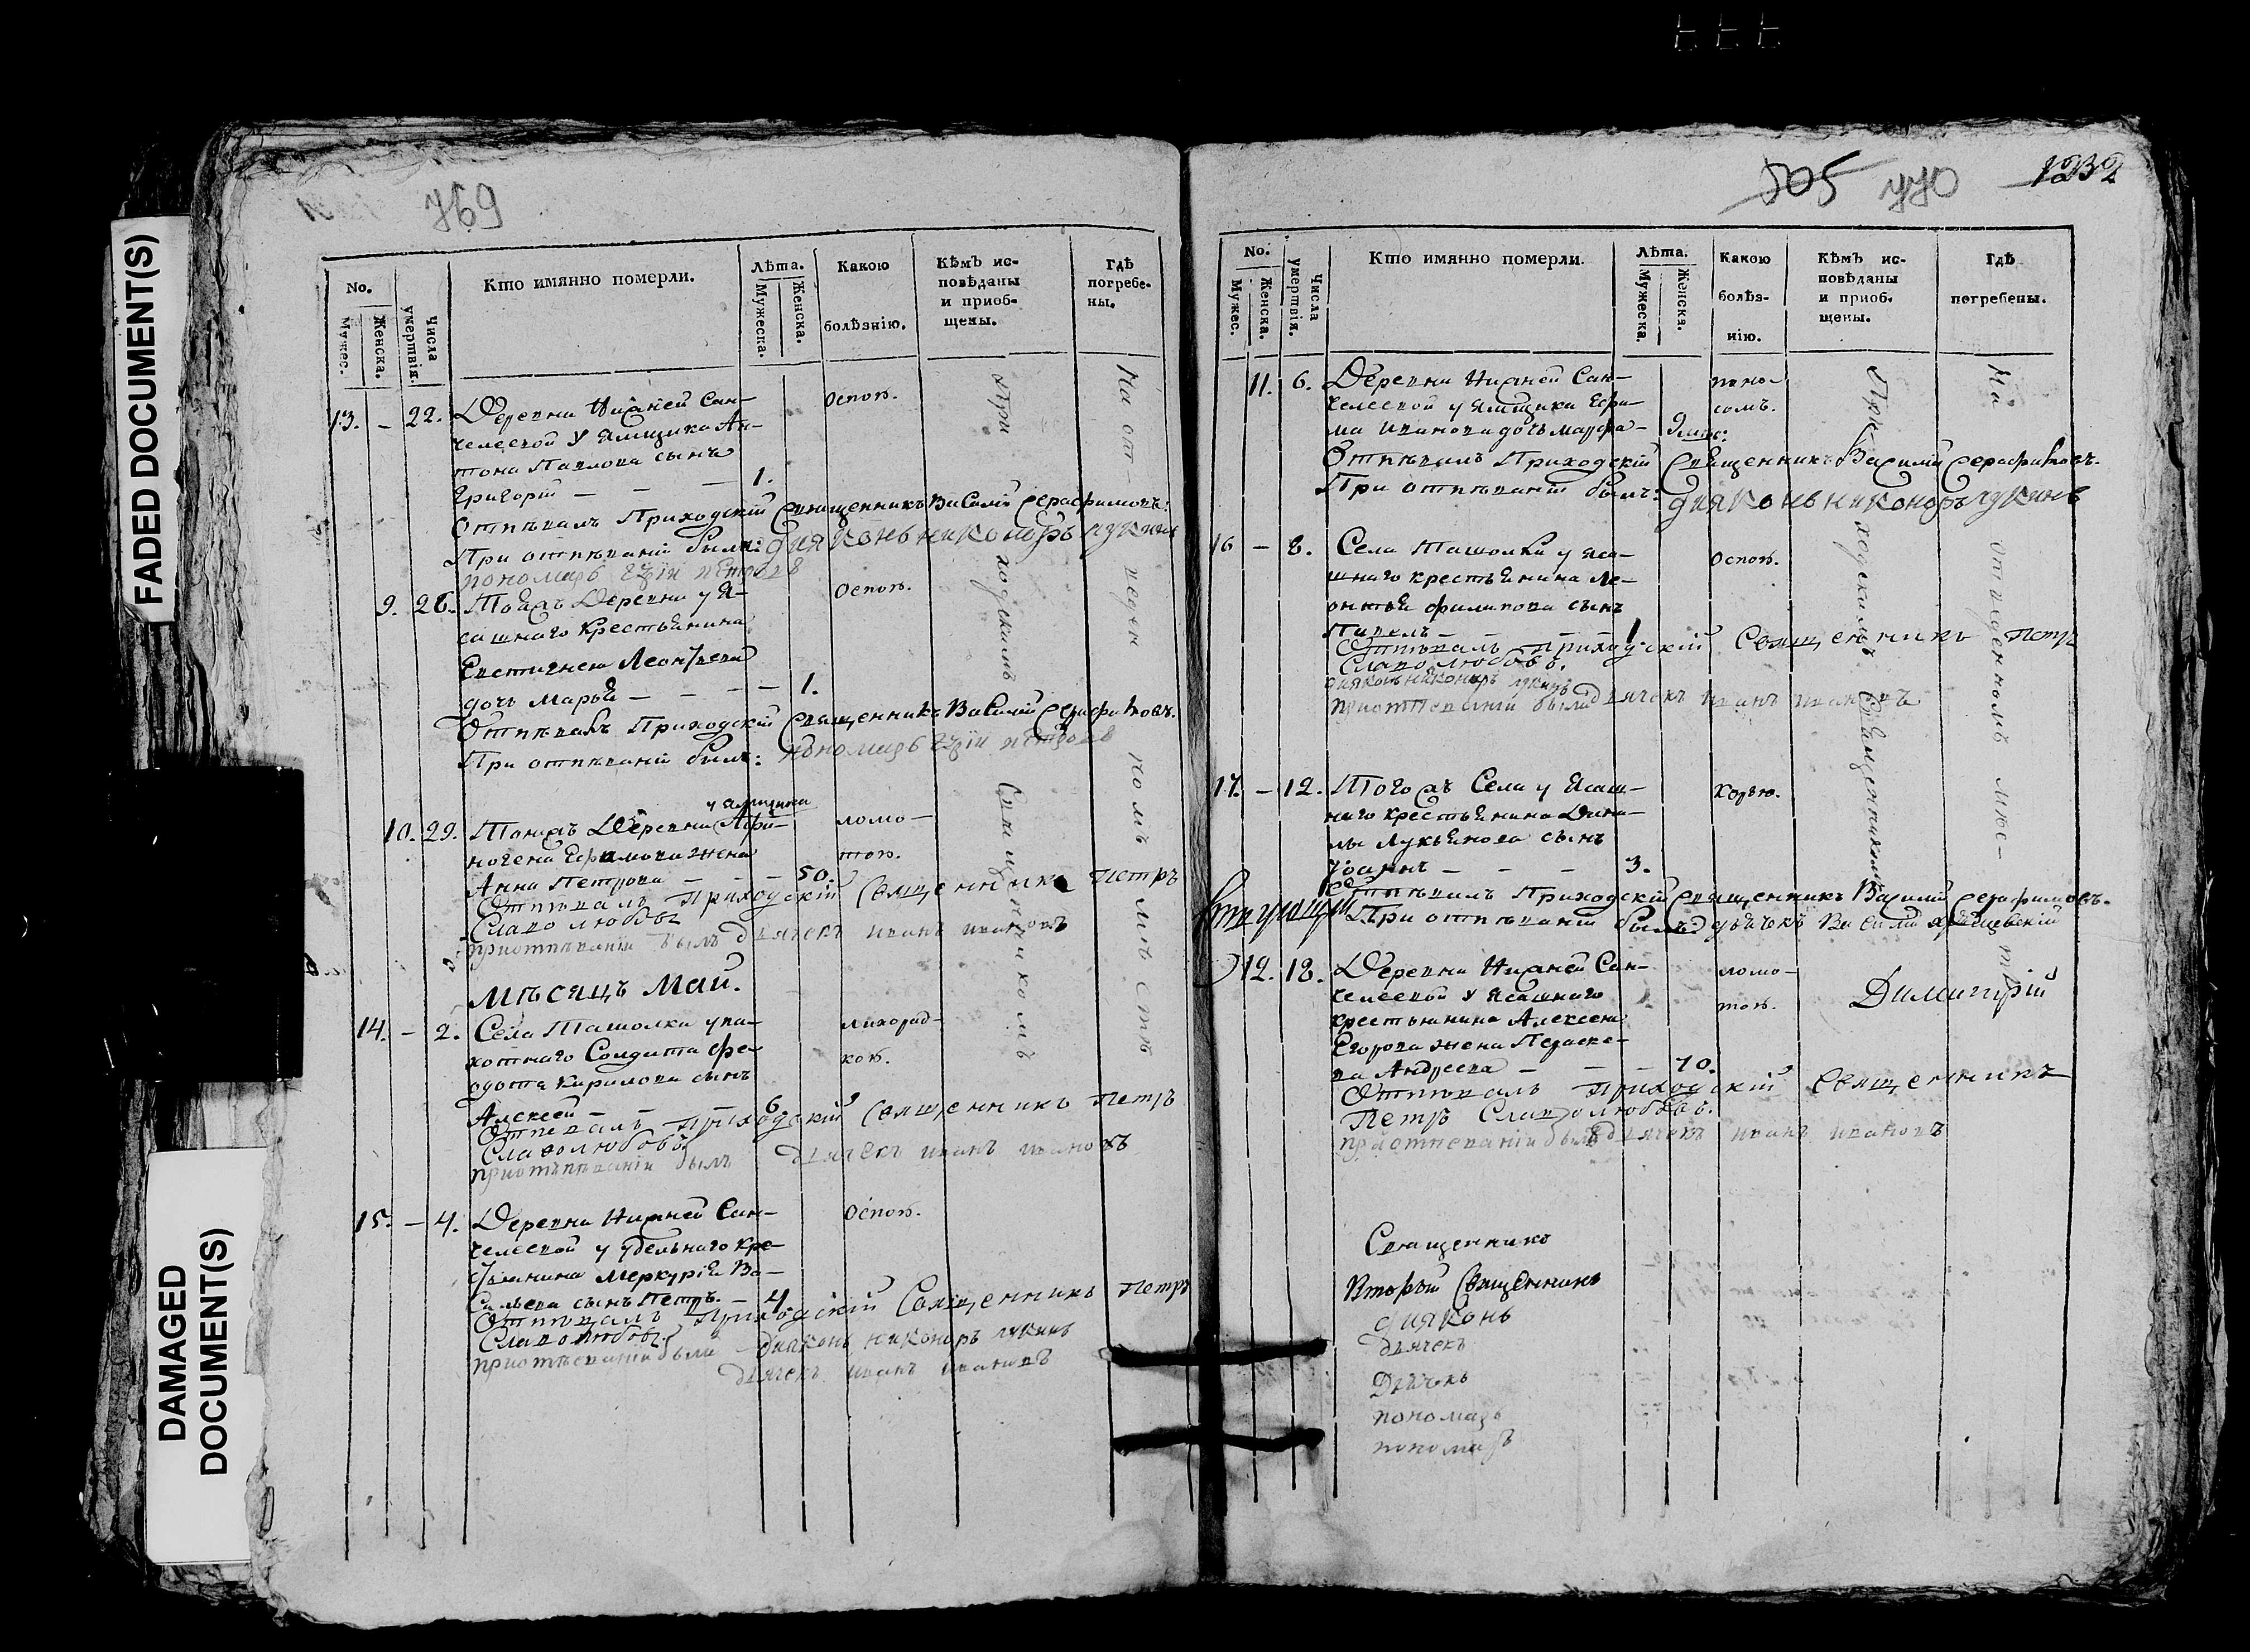 FADED DOCUMENT(S)
DAMAGED
DOCUMENT(S)
769
No.
Мужес.
Женска.
Числа умертвія.
Кто имянно померли.
Лѣта.
Мужеска.
Женска.
Какою
болѣзнію.
Кѣмъ ис-
повѣданы
и приоб-
щены.
Гдѣ
погребе-
ны.
13. — 22. Деревни Нижней Сан-
челеевой у ямщика Ан-
тона Павлова сынъ
Григорій — — — 1.
оспою.
Отпѣвалъ Приходскій Священникъ Василій Серафимовъ.
При отпѣваніи были: диаконь никоноръ лукинъ
пономарь петровъ
9. 26. Тояжъ Деревни у я-
сашнаго крестьянина
Евстигнея Леонтьева
дочь Марья — — — — 1.
оспою.
Отпѣвалъ Приходскій Священникъ Василій Серафимовъ.
При отпѣваніи былъ: пономарь петровъ
10. 29. Тояжъ Деревни у ямщика Афи-
ногена Ефимова жена
Анна Петрова — — — 50.
ломо-
тою.
Отпѣвалъ Приходскій Священникъ Петръ
Славолюбовъ
приотпѣваніи былъ дьячекъ иванъ ивановъ
Мѣсяцъ Май.
14. — 2. Села Ташолки у па-
хотнаго Солдата Фе-
одота Кирилова сынъ
Алексей — — — 6
лихорад-
кою.
Отпевалъ приходскій Священникъ Петръ
Славолюбовъ
приотпѣваніи былъ дьячекъ иванъ ивановъ
15. — 4. Деревни Нижней Сан-
челеевой у удельнаго кре-
стьянина Меркурія Ва-
сильева сынъ Петръ. — 4
оспою.
Отпѣвалъ Приходскій Священникъ Петръ
Славолюбовъ
приотпѣваніи были диаконь никоноръ лукинъ
дьячекъ иванъ ивановъ
Приходскимъ Священникомъ
На отведенномъ мѣстѣ
505 770 1232
No.
Мужес.
Женска.
Числа умертвія.
Кто имянно померли.
Лѣта.
Мужеска.
Женска.
Какою
болѣз-
нію.
Кѣмъ ис-
повѣданы
и приоб-
щены.
Гдѣ
погребены.
11. 6. Деревни Нижней Сан-
челеевой у ямщика Ефи-
ма Иванова дочь марфа — 9 мѣс:
поно-
сомъ.
Отпѣвалъ Приходскій Священникъ Василій Серафимовъ.
При отпѣваніи былъ: диаконь никоноръ лукинъ
16 — 8. Села Ташолки у яса-
шнаго крестьянина Ле-
онтья филипова сынъ
Павелъ — — — 1
оспою.
Отпѣвалъ приходскій Священникъ Петръ
Славолюбовъ.
диаконь никоноръ лукинъ
приотпеваніи были дьячекъ иванъ ивановъ
17. — 12. Тогожъ Села у Ясаш-
наго крестьянина Дани-
лы Лукьянова сынъ
Іоаннъ — — — 3.
корью.
Отпѣвалъ Приходскій Священникъ Василій Серафимовъ.
При отпѣваніи былъ: дьячекъ Василій
12. 18. Деревни Нижней Сан-
челеевой у Ясашнаго
крестьянина Алексея
Егорова жена Параске-
ва Андреева — — — 70.
ломо-
тою.
Отпѣвалъ Приходскій Священникъ
Петръ Славолюбовъ.
приотпеваніи былъ дьячекъ иванъ ивановъ
Приходскимъ Священникомъ
На отведенномъ мѣс-
тѣ
Димитрій
Священникъ
Вторый Священникъ
диаконь
дьячекъ
Дьячекъ
пономарь
пономарь